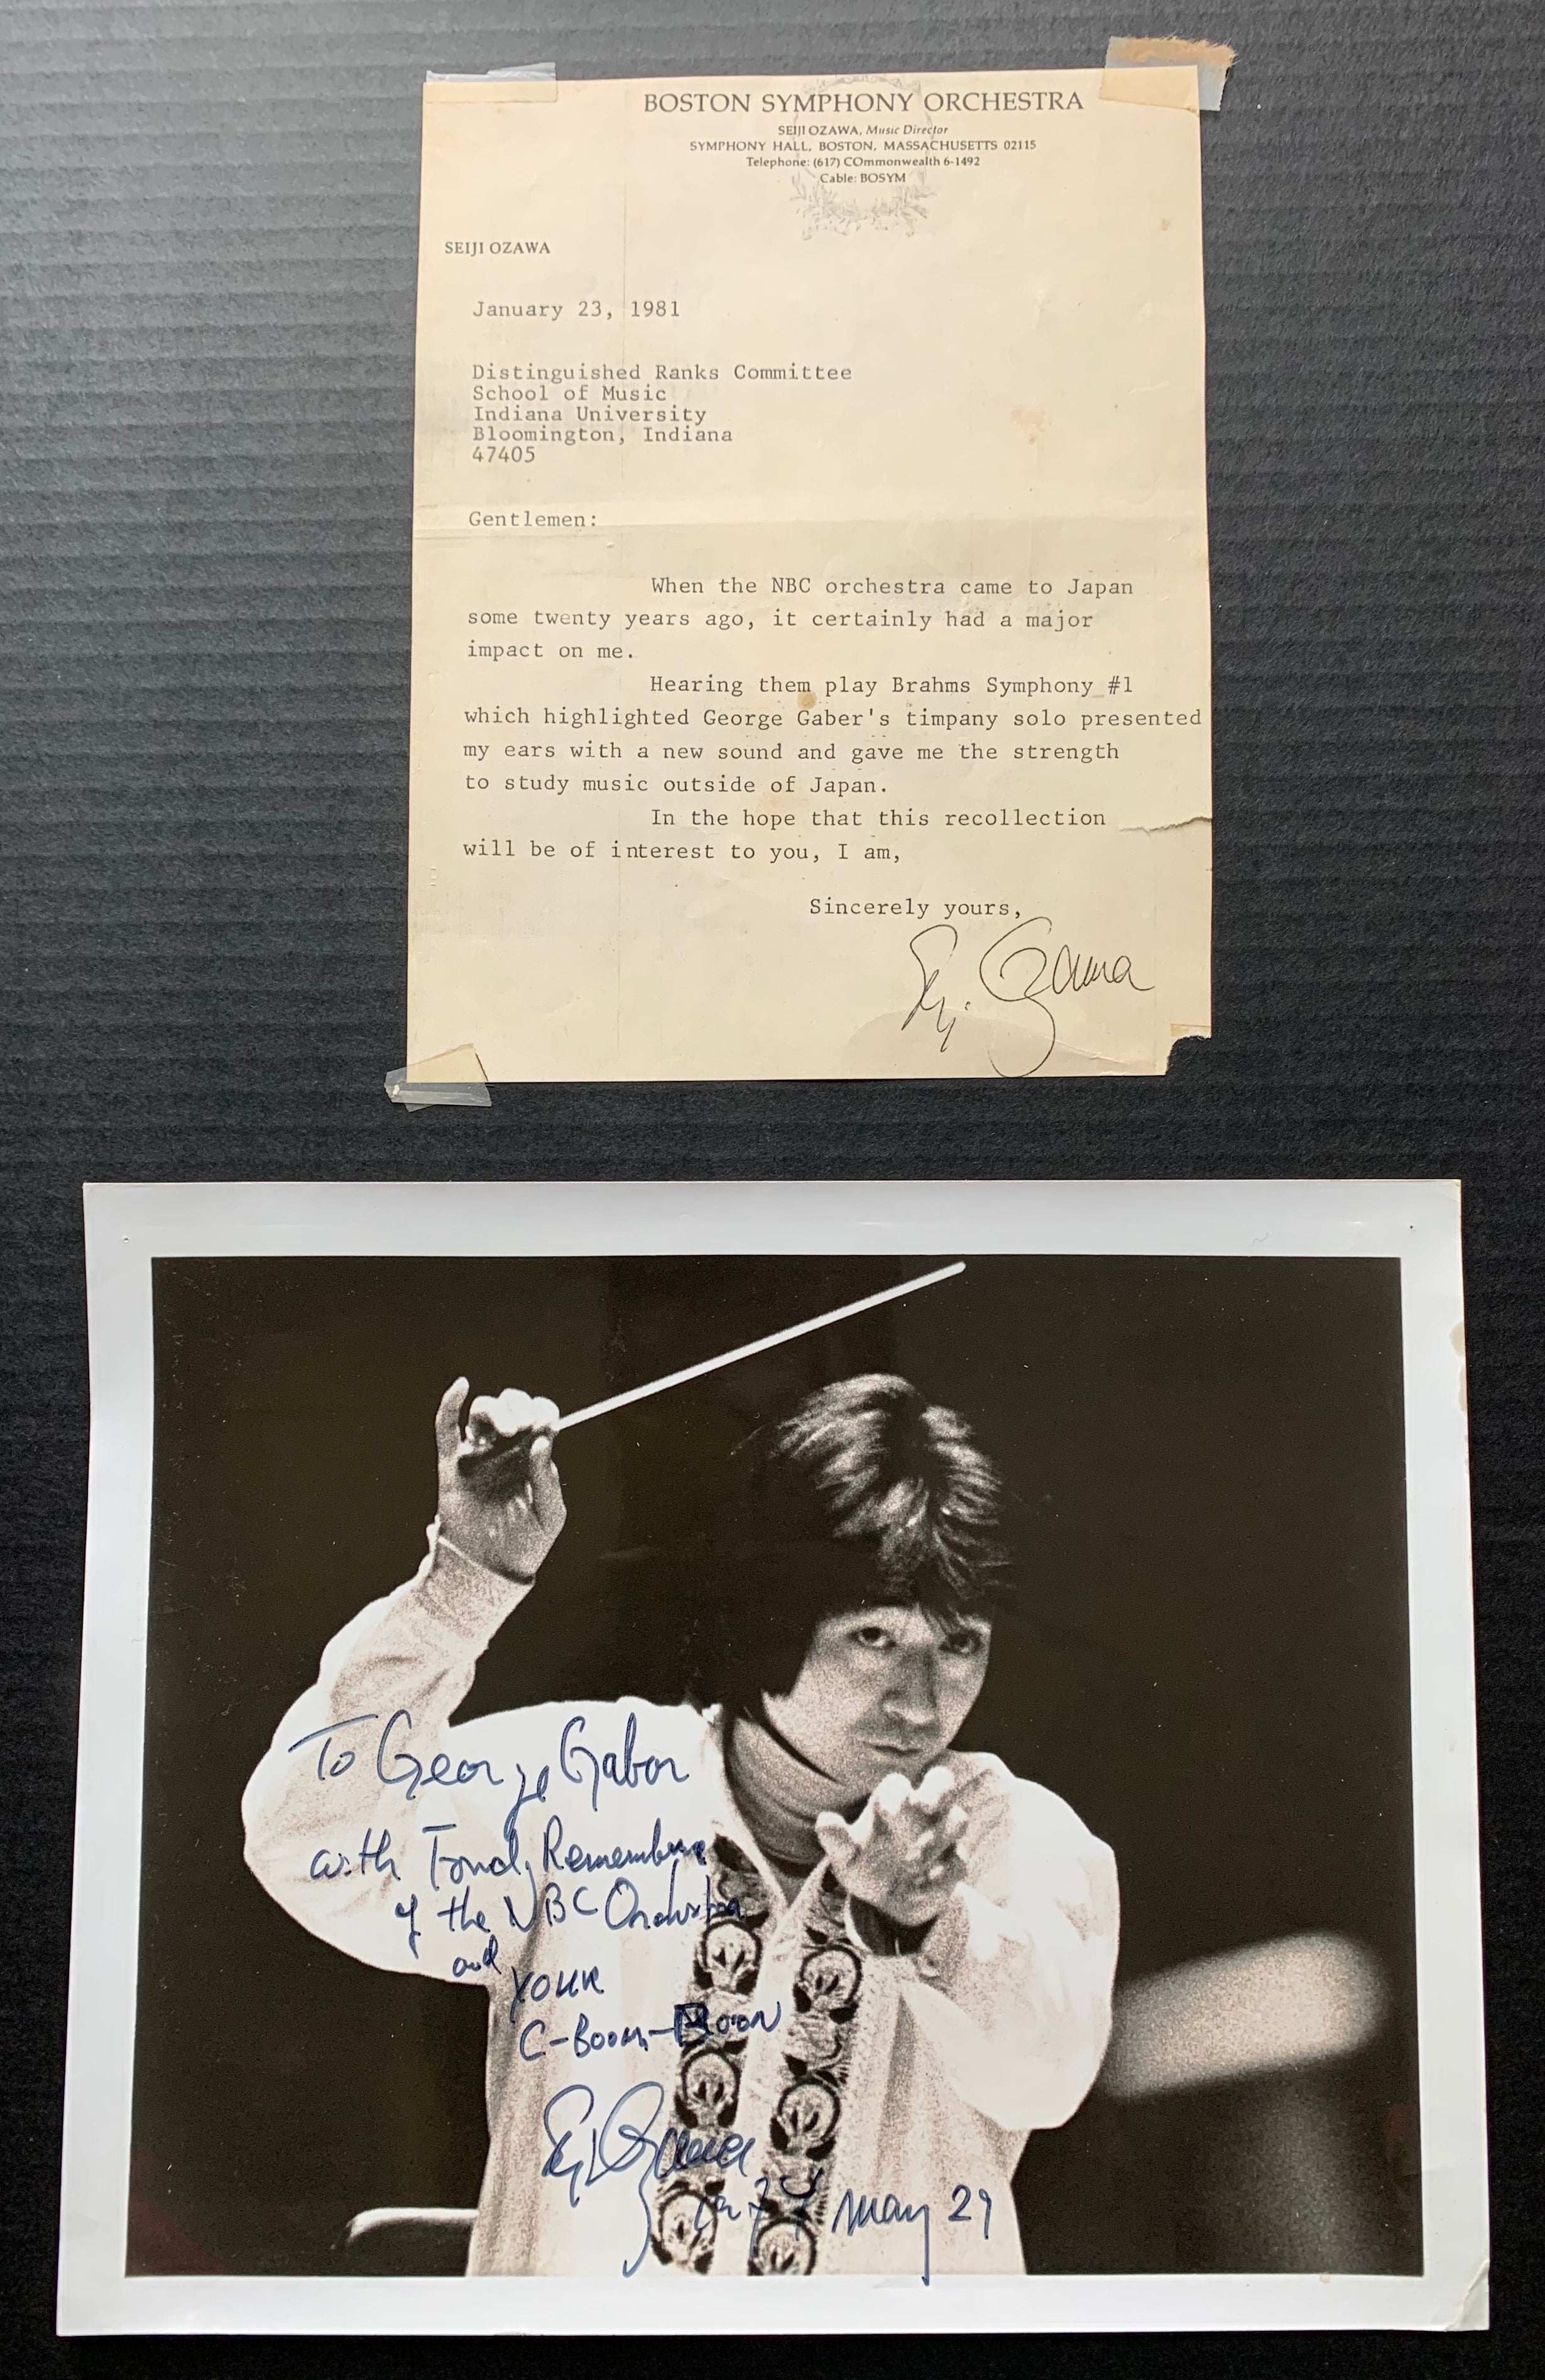 BOSTON SYMPHONY ORCHESTRA
SEIJI OZAWA, Music Director
SYMPHONY HALL, BOSTON, MASSACHUSETTS 02115
Telephone: (617) COmmonwealth 6-1492
Cable: BOSYM
SEIJI OZAWA
January 23, 1981
Distinguished Ranks Committee
School of Music
Indiana University
Bloomington, Indiana
47405
Gentlemen:
When the NBC orchestra came to Japan
some twenty years ago, it certainly had a major
impact on me.
Hearing them play Brahms Symphony #1
which highlighted George Gaber's timpany solo presented
my ears with a new sound and gave me the strength
to study music outside of Japan.
In the hope that this recollection
will be of interest to you, I am,
Sincerely yours,
Seiji Ozawa
To George Gabor
with Fond
of the NBC Orchestra
and
YOUR
C-BOOM-BOON
Seiji Ozawa
May 29